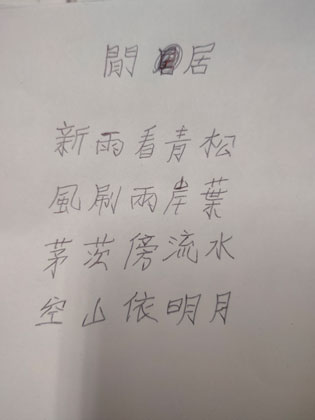 閒居
新雨看青松
風刷兩岸葉
茅茨傍流水
空山依明月